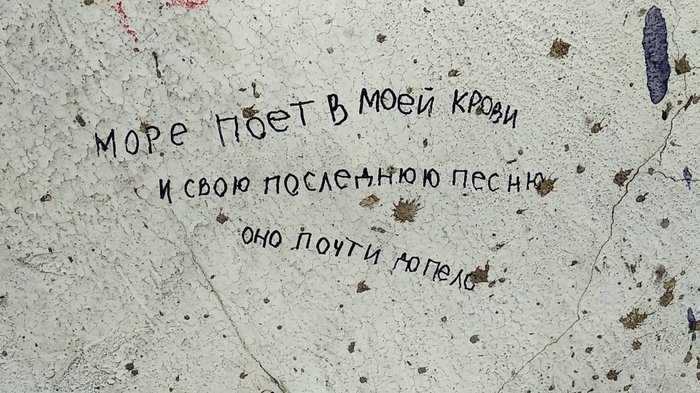 море поет в моей крови
и свою последнюю песню
оно почти допело